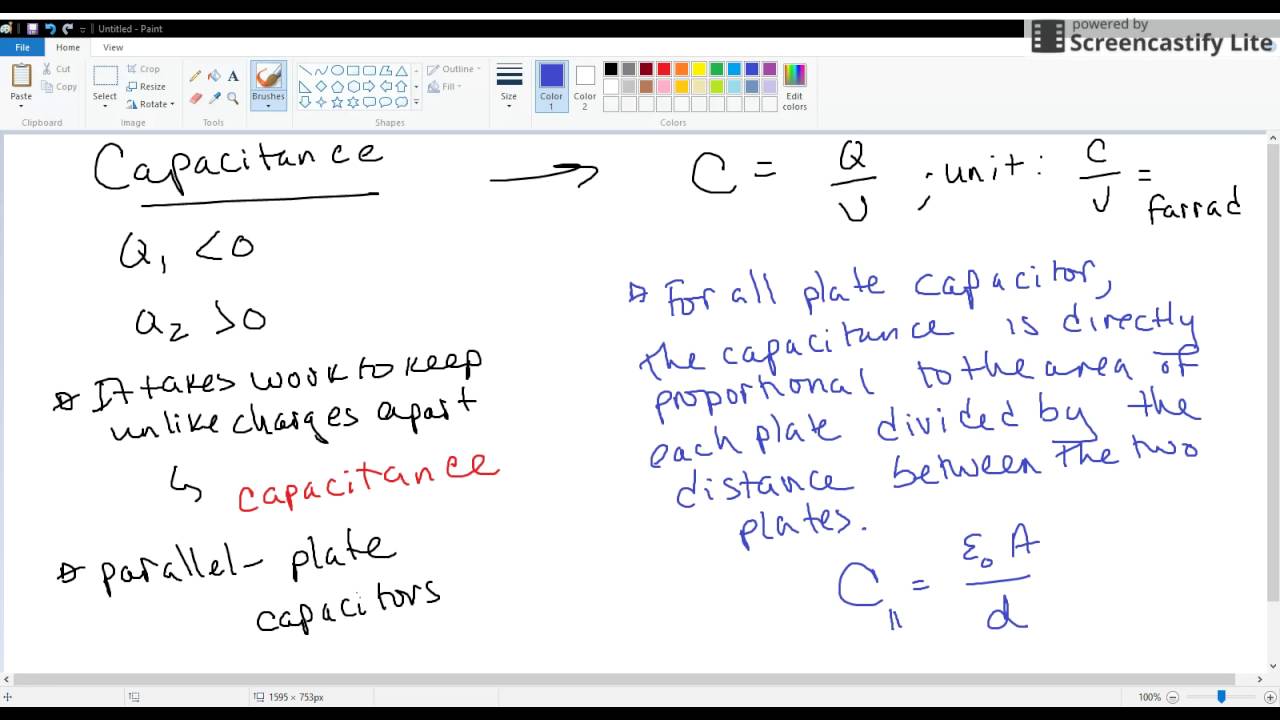 Untitled - Paint
powered by
Screencastify Lite
File Home View
Paste
Cut
Copy
Clipboard
Select
Crop
Resize
Rotate
Image
A
Tools
Brushes
Outline
Fill
Shapes
Size
Color 1
Color 2
Edit colors
Colors
Capacitance
Q₁ <0
Q₂ >0
It takes work to keep
unlike charges apart
capacitance
parallel-plate
capacitors
C = Q/V ; unit: C/V =
farrad
For all plate capacitor,
the capacitance is directly
proportional to the area of
each plate divided by the
distance between the two
plates.
C₁₁ = ε₀ A / d
100%
1595 × 753px